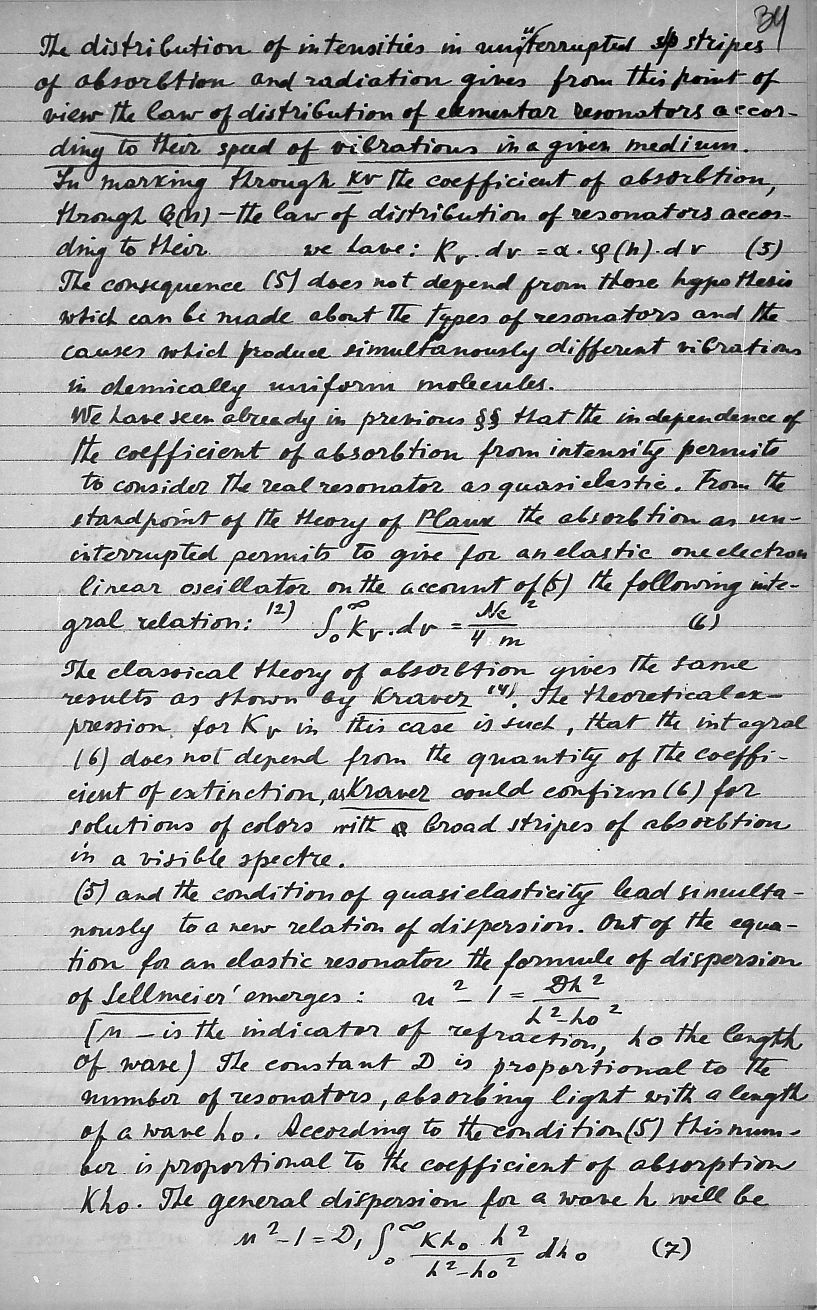 34
The distribution of intensities in uninterrupted stripes
of absorbtion and radiation gives from this point of
view the law of distribution of elementar resonators accor-
ding to their speed of vibrations in a given medium.
In marking through Kν the coefficient of absorbtion,
through φ(n) – the law of distribution of resonators accor-
ding to their we have: Kν . dν = α . φ(n) . dν (5)
The consequence (5) does not depend from those hypothesis
which can be made about the types of resonators and the
causes which produce simultanously different vibrations
in chemically uniform molecules.
We have seen already in previous §§ that the independence of
the coefficient of absorbtion from intensity permits
to consider the real resonator as quasielastic. From the
standpoint of the theory of Planx the absorbtion as un-
interrupted permits to give for an elastic one electron
linear oscillator on the account of (5) the following inte-
gral relation: 12) ∫₀^∞ Kν . dν = Ne² / 4 m (6)
The classical theory of absorbtion gives the same
results as shown by Kraver 14). The theoretical ex-
pression for Kν in this case is such, that the integral
(6) does not depend from the quantity of the coeffi-
cient of extinction, as Kraver could confirm (6) for
solutions of colors with broad stripes of absorbtion
in a visible spectre.
(5) and the condition of quasielasticity lead simulta-
nously to a new relation of dispersion. Out of the equa-
tion for an elastic resonator the formule of dispersion
of Sellmeier' emerges: n² – 1 = Dh² / h² – h₀²
(n – is the indicator of refraction, h₀ the length
of wave) The constant D is proportional to the
number of resonators, absorbing light with a length
of a wave h₀. According to the condition (5) this num-
ber is proportional to the coefficient of absorption
Kh₀. The general dispersion for a wave h will be
n² – 1 = D₁ ∫₀^∞ Kh₀ h² / h² – h₀² dh₀ (7)